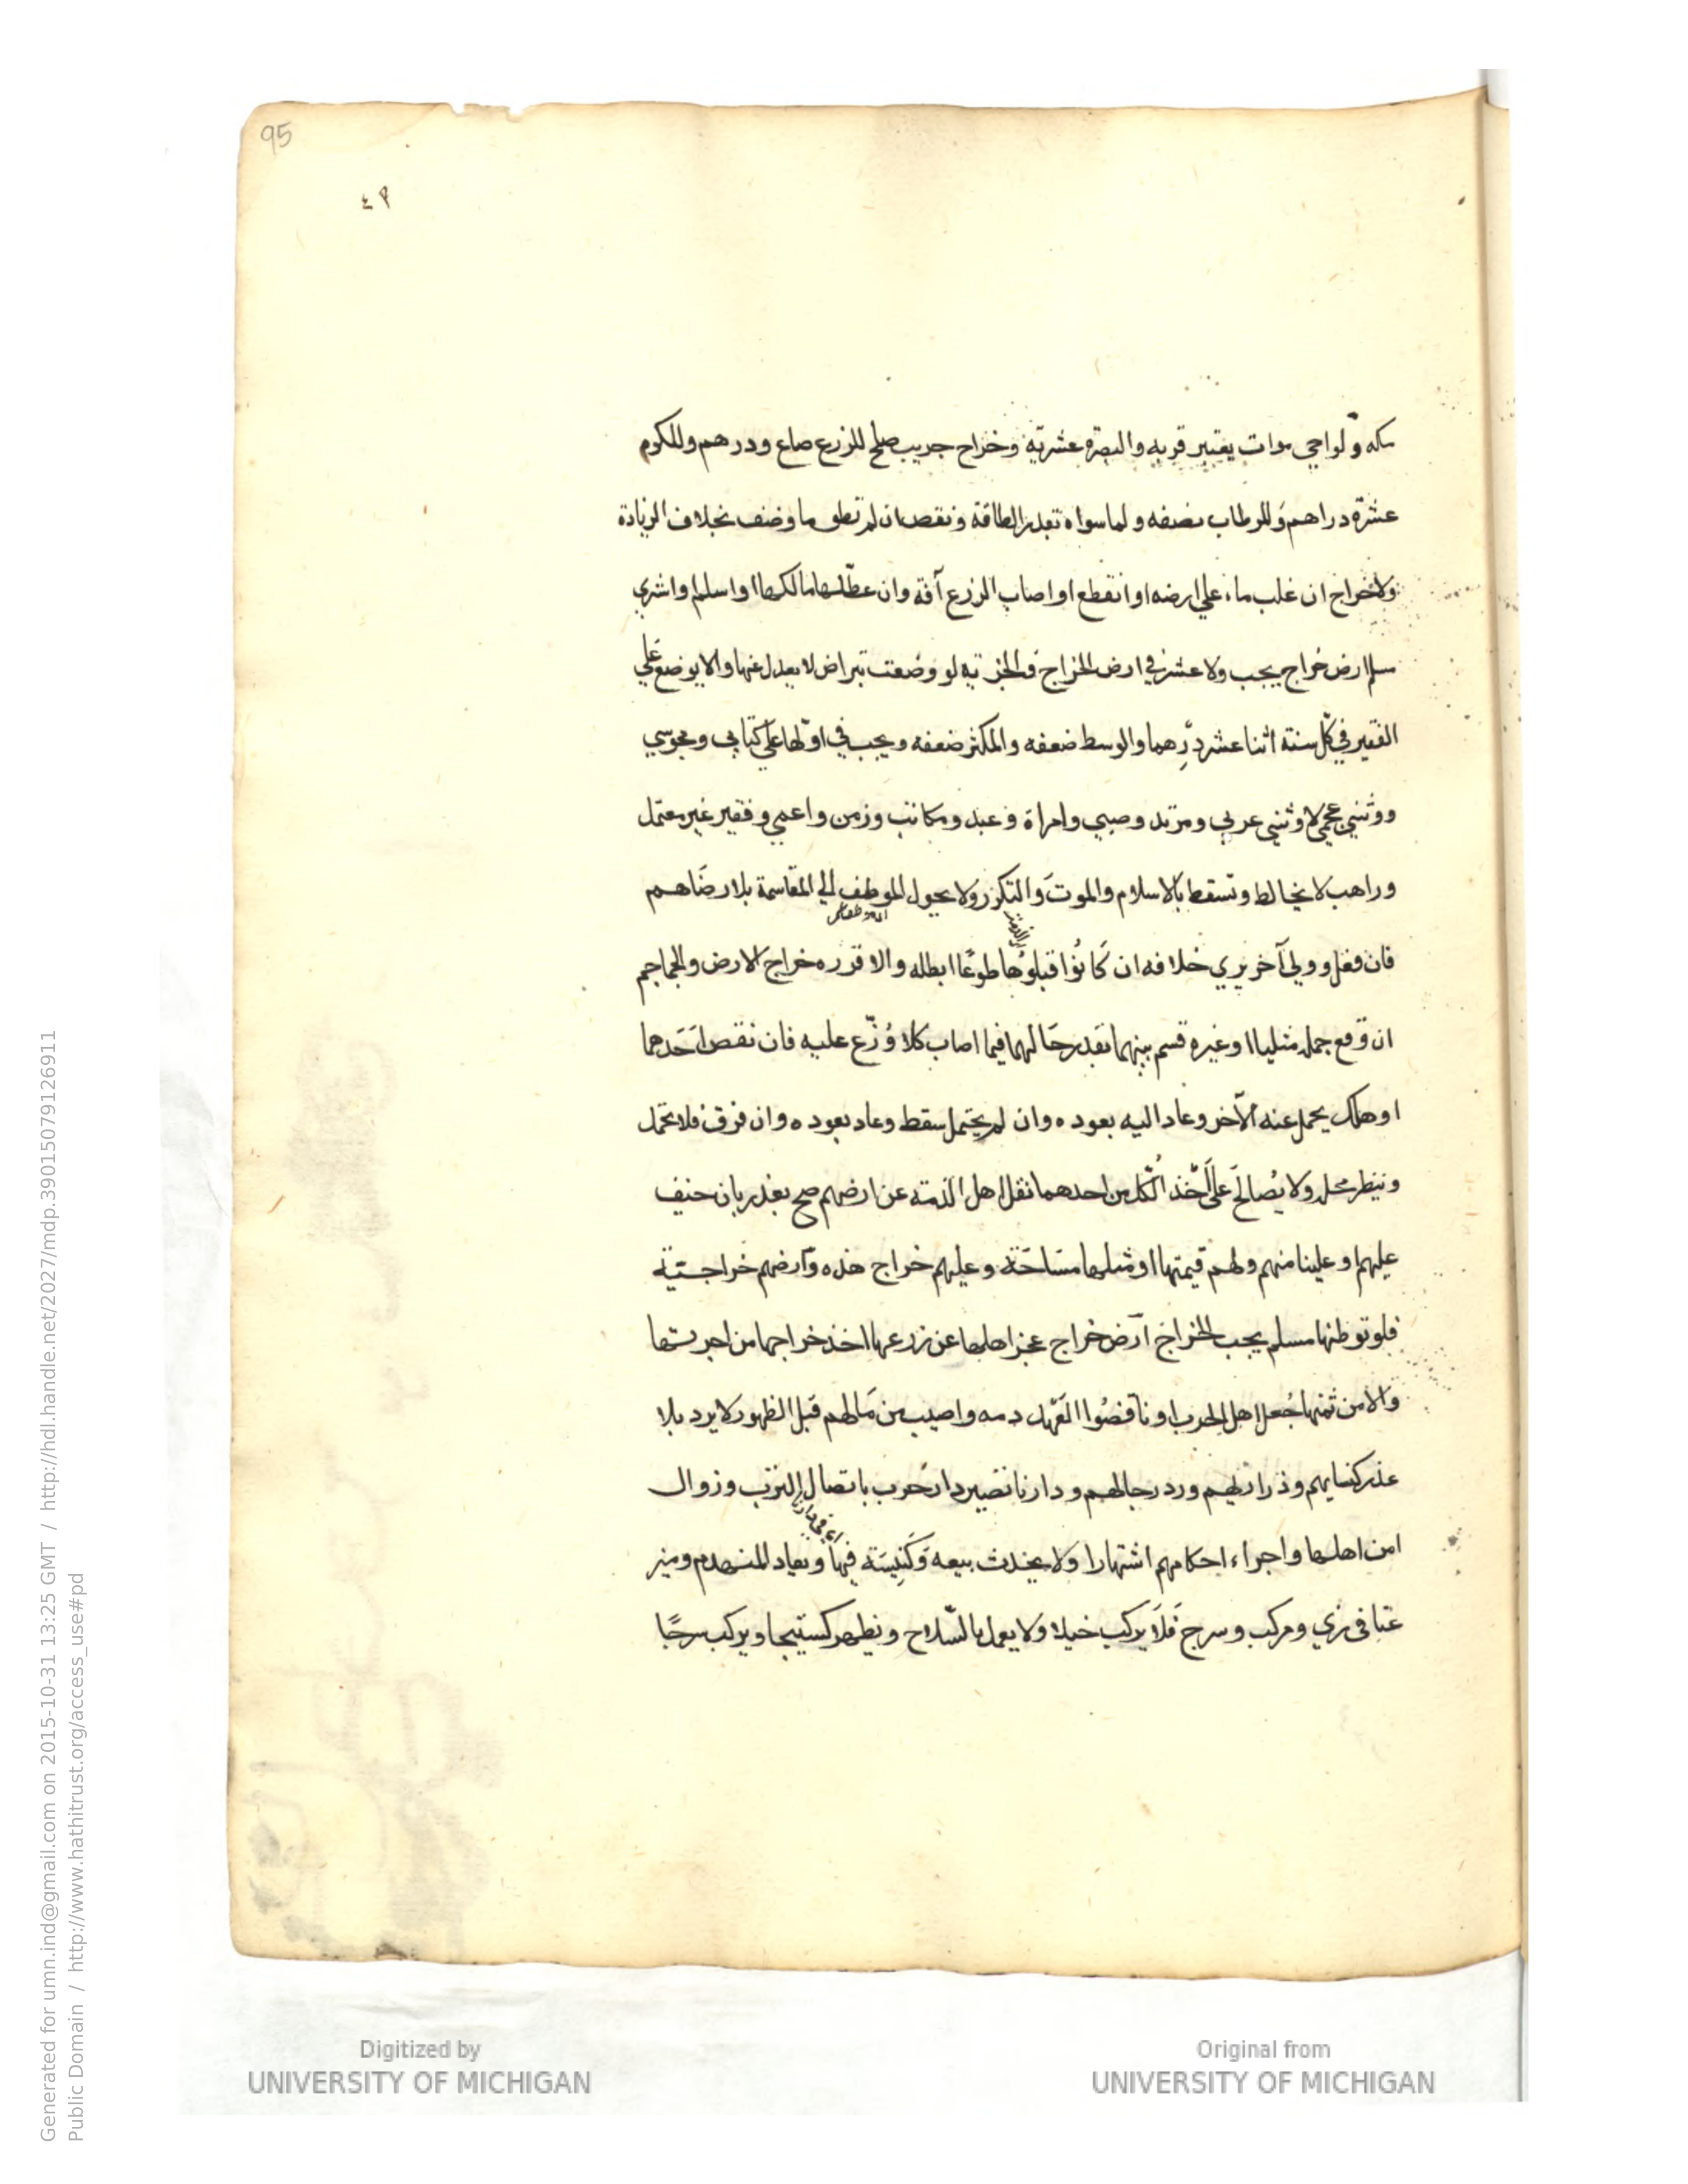 95
٤٩
مكه ولو احيى موات يعتبر قربه والبصرة عشرية وخراج جريب صلح للزرع صاع ودرهم وللكرم
عشرة دراهم وللرطاب نصفه ولما سواه بقدر الطاقة ونقص ان لم تطق ما وضف بخلاف الزيادة
ولا خراج ان غلب ماء علي ارضه او انقطع او اصاب الزرع آفة وان عطلها مالكها او اسلم او اشتري
مسلم ارض خراج يجب ولا عشر في ارض الخراج فى الجزية لو وضعت بتراض لا يعدل عنها والا يوضع علي
الفقير في كل سنة اثنا عشر درهما والوسط ضعفه والمكثر ضعفه ويجب في اولها علي كتابي ومجوسي
ووثني عجمي لا وثني عربي ومرتد وصبي وامراة وعبد ومكاتب وزمن واعمي وفقير غير معتمل
وراهب لا يخالط وتسقط بالاسلام والموت والتكرر ولا يحول الموظف الي المقاسمة بلا رضاهم
فان فعل وولي آخر يري خلافه ان كانوا قبلوها طوعا ابطله والا قرره خراج الارض والجماجم
ان وقع جملة مثليا او غيره قسم بينهما بقدر حالهما فما اصاب كلا وزع عليه فان نقص احدهما
او هلك يحمل عنه الآخر وعاد اليه بعوده وان لم يحتمل سقط وعاد بعوده وان فرق فلا تحمل
وينظر محله ولا يصالح علي اخذ الكل من احدهما نقل اهل الذمة عن ارضهم صح بعذر بان خيف
عليهم او علينا منهم ولهم قيمتها او مثلها مساحة وعليهم خراج هذه وارضهم خراجية
فلو توطنها مسلم يجب الخراج ارض خراج عجز اهلها عن زرعها اخذ خراجها من اجرتها
والا من ثمنها جعل اهل الحرب او ناقضوا العهد ذمه واصيب من مالهم قبل الظهور لا يرد بلا
عذر كنسايهم وذراريهم ورد رجالهم ودارنا تصير دار حرب باتصال الترب وزوال
امن اهلها واجراء احكامهم اشتهارا ولا يحدث بيعه وكنيسة فيها ويعاد المنهدم وميز
عنا في زي ومركب وسرج فلا يركب خيلا ولا يعمل بالسلاح ويظهر كستيجا ويركب سرجا
Digitized by
UNIVERSITY OF MICHIGAN
Original from
UNIVERSITY OF MICHIGAN
Generated for umn.ind@gmail.com on 2015-10-31 13:25 GMT / http://hdl.handle.net/2027/mdp.39015079126911
Public Domain / http://www.hathitrust.org/access_use#pd